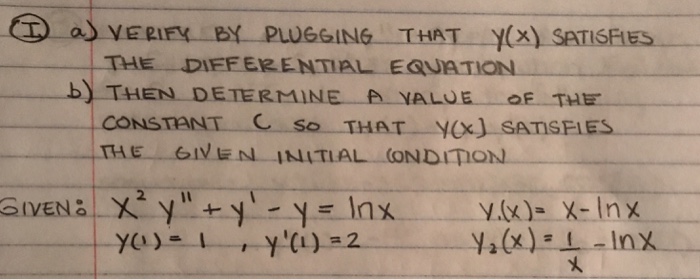 (I) a) VERIFY BY PLUGGING THAT Y(X) SATISFIES
THE DIFFERENTIAL EQUATION
b) THEN DETERMINE A VALUE OF THE
CONSTANT C SO THAT Y(X] SATISFIES
THE GIVEN INITIAL CONDITION
GIVEN: x² y" + y' - y = lnx y₁(x) = x - lnx
y(1) = 1 , y'(1) = 2 y₂(x) = 1/x - lnx